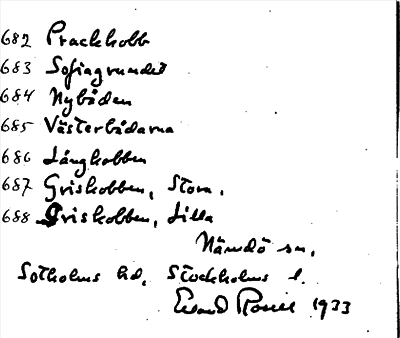 682 Prackkobb
683 Sofiagrundet
684 Nybåden
685 Västerbådarna
686 Långkobben
687 Griskobben, Stora.
688 Griskobben, Lilla
Nämdö sn.
Sotholms hd. Stockholms l.
1933